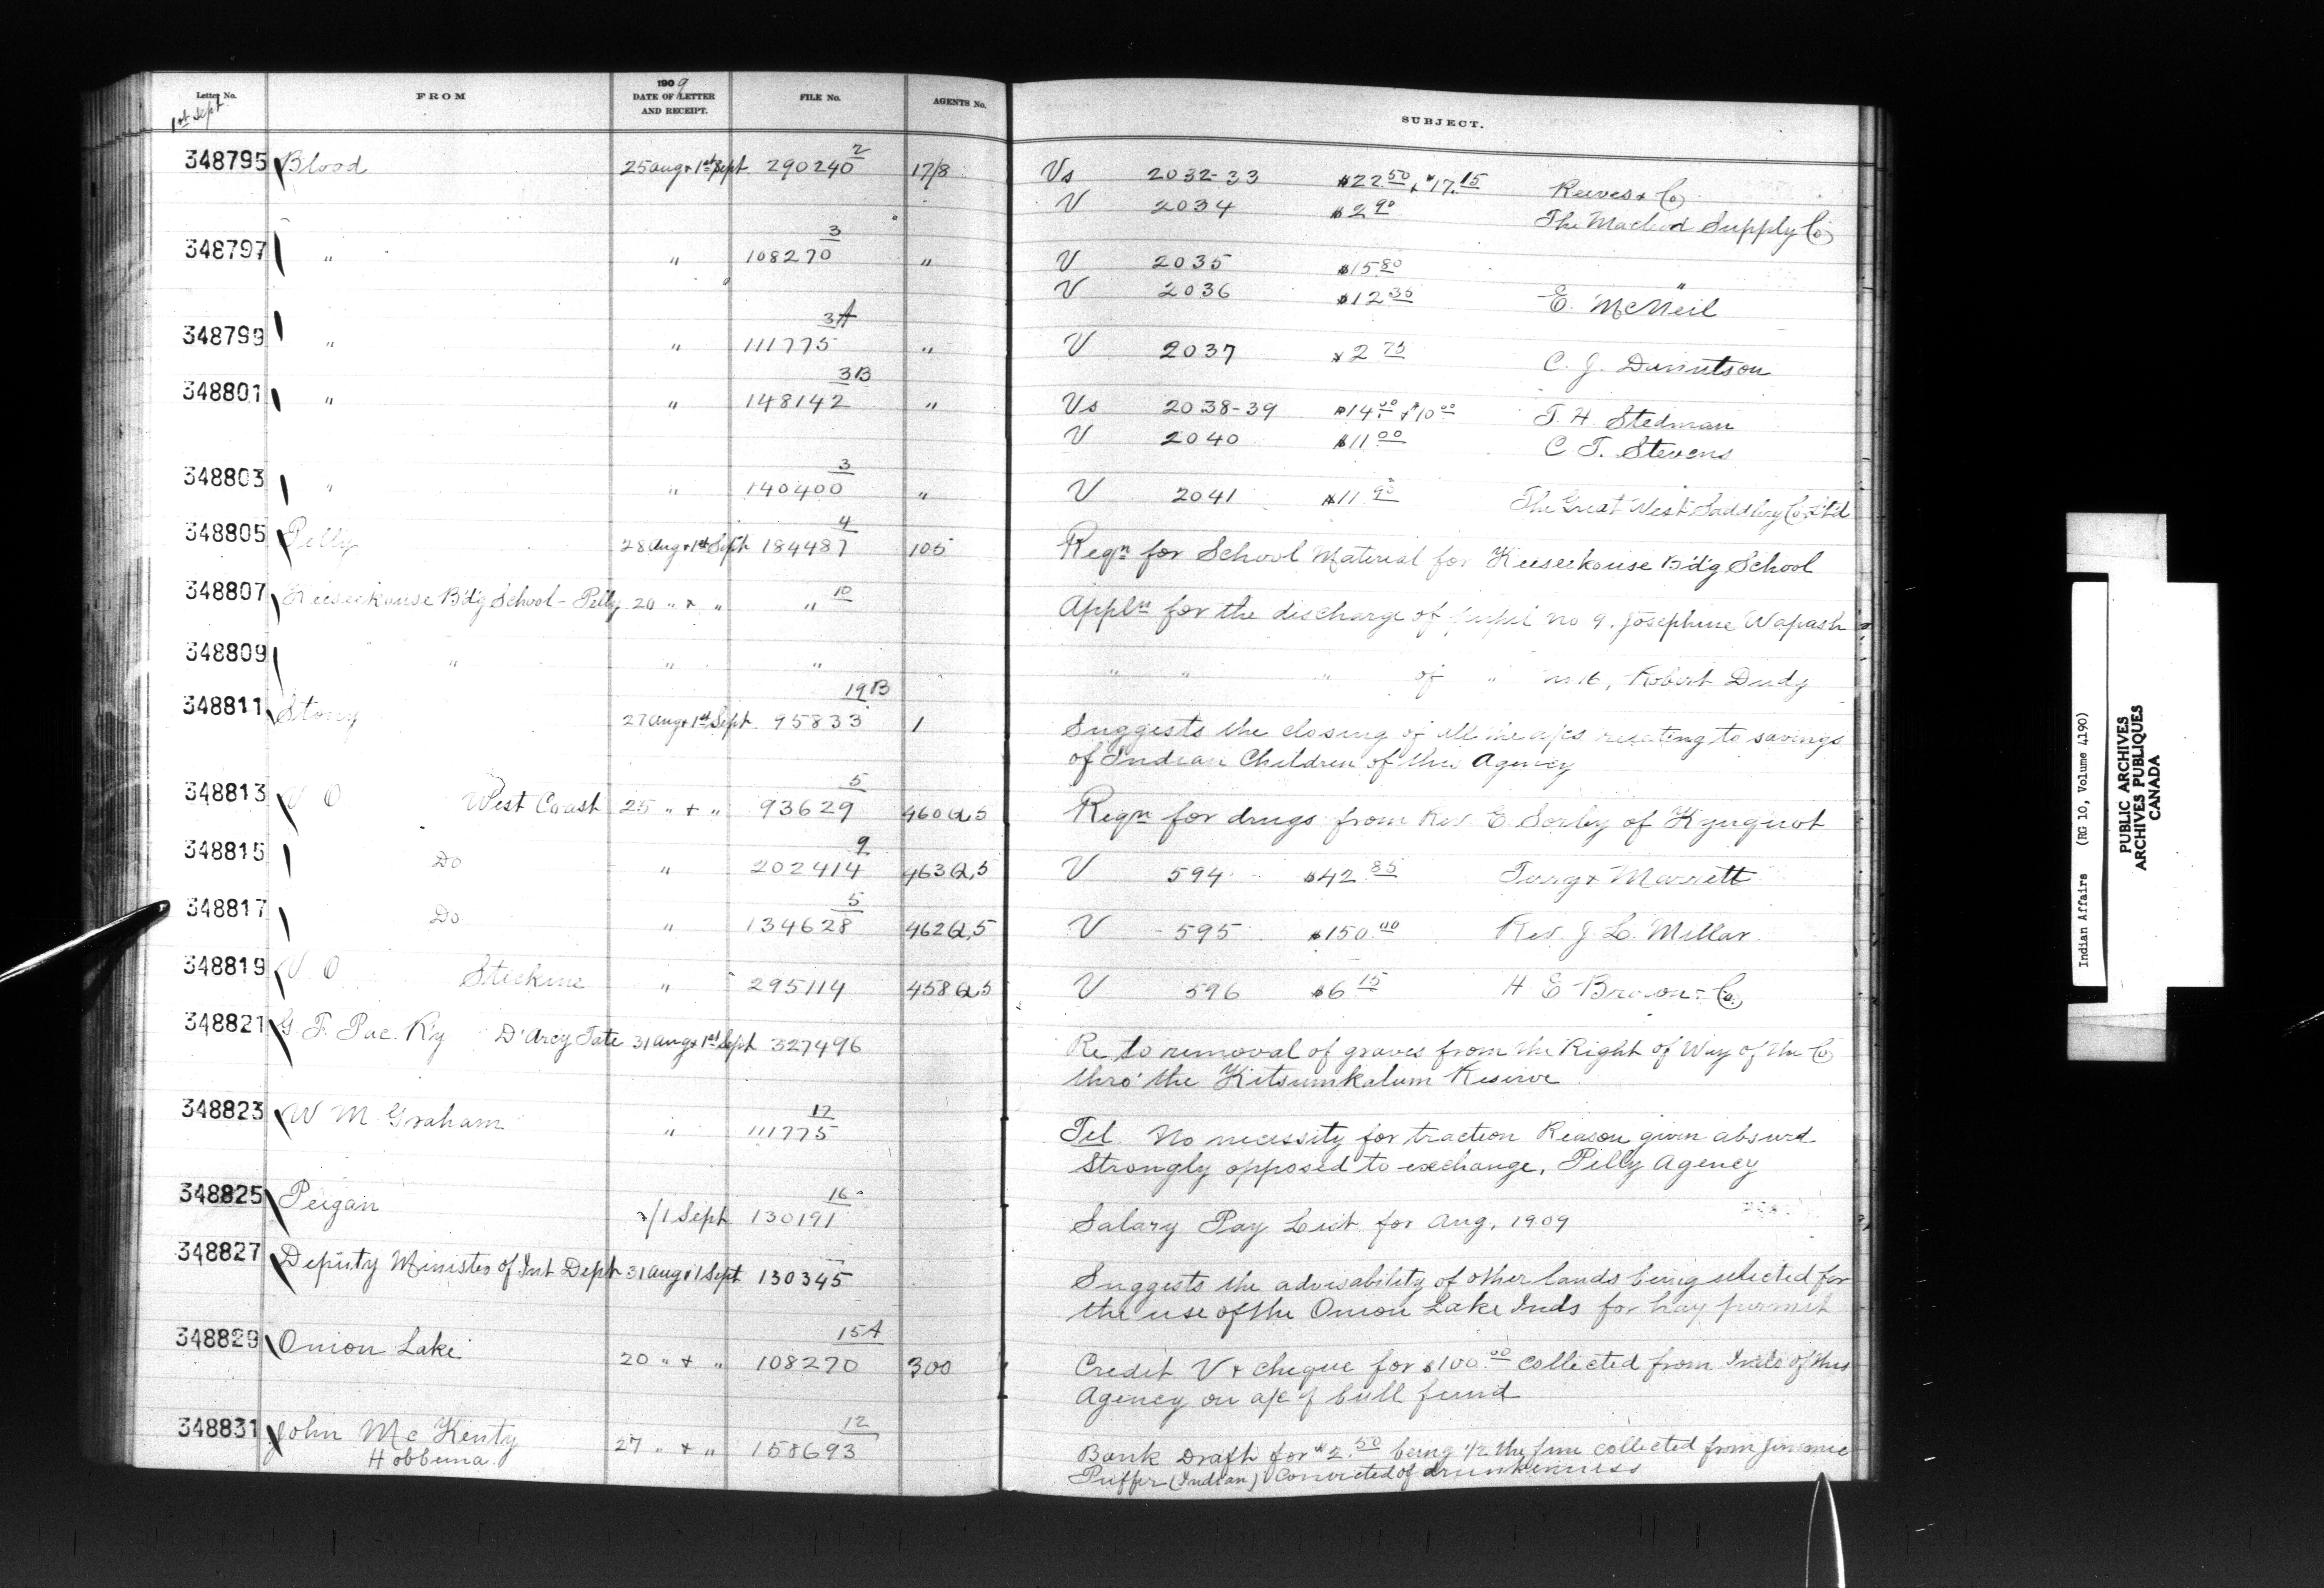 Letter No. FROM 1909 DATE OF LETTER AND RECEIPT. FILE No. AGENTS No. SUBJECT.
1st Sept
348795 Blood 25 Aug + 1st Sept 290240 2 17/8 Vs 2032-33 $22.50 + $17.15 Reeves + Co
V 2034 $2.90 The Macleod Supply Co
348797 " " 108270 3 " V 2035 $15.80 "
V 2036 $12.35 E. McNeil
348799 " " 111775 3A " V 2037 $2.75 C. J.
348801 " " 148142 3B " Vs 2038-39 $14.00 + $10.00 T. H. Stedman
V 2040 $11.00 C. T. Stevens
348803 " " 140400 3 " V 2041 $11.90 The Great West Saddlery Co Ltd
348805 Pelly 28 Aug + 1st Sept 184487 4 105 Reqn for School Material for Keeseekouse Bd'g School
348807 Keeseekouse Bd'g School - Pelly 20 " + " " 10 Appln for the discharge of pupil no 9. Josephine Wapash
348809 " " " " " " " of " no 16, Robert Dudy
348811 Stony 27 Aug + 1st Sept. 95833 19B 1 Suggests the closing of all the a/cs relating to savings
of Indian Children of this Agency
348813 V O West Coast 25 " + " 93629 5 460Q,5 Reqn for drugs from Rev. E Sorby of Kyuquot
348815 Do " 202414 9 463Q,5 V 594 $42.85 Terry + Marrett
348817 Do " 134628 5 462Q,5 V 595 $150.00 Rev. J. L. Millar.
348819 V O Stickine " 295114 458Q5 V 596 $6.15 H E Brown + Co.
348821 G. T. Pac. R'y D'Arcy Tate 31 Aug + 1st Sept 327496 Re to removal of graves from the Right of Way of the Co
thro' the Kitsumkalum Reserve
348823 W M Graham " 111775 17 Tel. No necessity for traction Reason given absurd
Strongly opposed to exchange, Pelly Agency
348825 Peigan /1 Sept 130191 16 Salary Pay List for Aug, 1909
348827 Deputy Minister of Int Dept 31 Aug + 1 Sept 130345 Suggests the advisability of other lands being selected for
the use of the Onion Lake Inds for hay permit
348829 Onion Lake 20 " + " 108270 15A 300 Credit V + cheque for $100.00 collected from Inds of this
Agency on a/c of bull fund
348831 John McKenty 27 " + " 158693 12 Bank Draft for $2.50 being 1/2 the fine collected from Jimmie
Hobbema. Puffer (Indian) Convicted of drunkenness
Indian Affairs (RG 10, Volume 4190)
PUBLIC ARCHIVES
ARCHIVES PUBLIQUES
CANADA